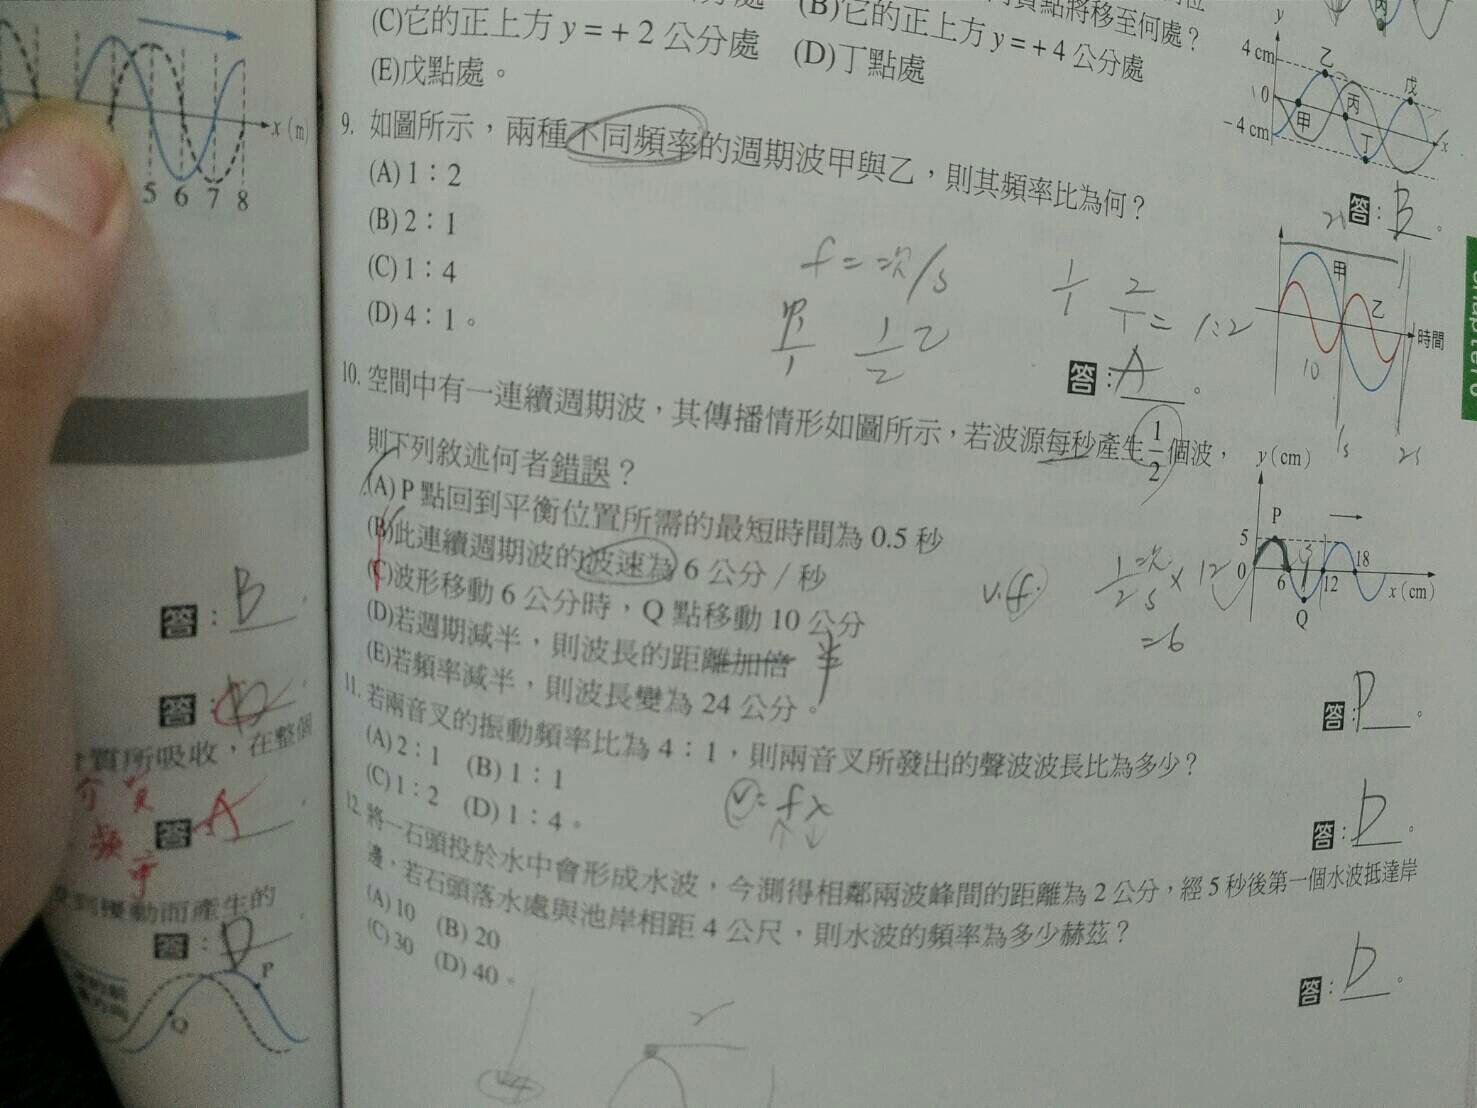 質點將移至何處？
(B)它的正上方 y = + 4 公分處
(C)它的正上方 y = + 2 公分處
(D)丁點處
(E)戊點處。
y
4 cm
0
－4 cm
甲
乙
丙
丁
戊
x
答：B。
9. 如圖所示，兩種不同頻率的週期波甲與乙，則其頻率比為何？
(A) 1：2
(B) 2：1
(C) 1：4
(D) 4：1。
f = 次/s
1/1 2/1 = 1:2
1/1 1/2 乙
答：A。
甲
乙
時間
10
1s
2s
10. 空間中有一連續週期波，其傳播情形如圖所示，若波源每秒產生 1/2 個波，
則下列敘述何者錯誤？
(A) P 點回到平衡位置所需的最短時間為 0.5 秒
(B)此連續週期波的波速為 6 公分 / 秒
(C)波形移動 6 公分時，Q 點移動 10 公分
(D)若週期減半，則波長的距離加倍 半
(E)若頻率減半，則波長變為 24 公分。
y (cm)
P
5
0
6
9
12
18
x (cm)
Q
v.f.
1/2 次/s × 12
= 6
答：D。
11. 若兩音叉的振動頻率比為 4：1，則兩音叉所發出的聲波波長比為多少？
(A) 2：1 (B) 1：1
(C) 1：2 (D) 1：4。
v = fλ
答：D。
12. 將一石頭投於水中會形成水波，今測得相鄰兩波峰間的距離為 2 公分，經 5 秒後第一個水波抵達岸
邊，若石頭落水處與池岸相距 4 公尺，則水波的頻率為多少赫茲？
(A) 10 (B) 20
(C) 30 (D) 40。
答：D。
x (m)
5 6 7 8
答：B
答：
質所吸收，在整個
介質
答：A
頻率
受到擾動而產生的
答：D
P
Q
chapter 6